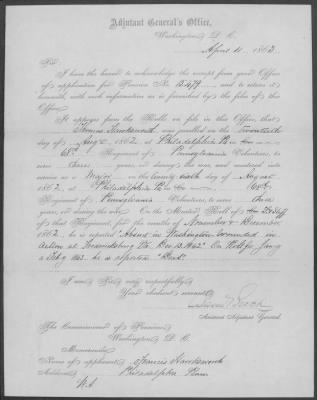 Adjutant General's Office,
Washington D. C.
April 11, 1863
Sir:
I have the honor to acknowledge the receipt from your Office
of application for Pension No. 15,479, and to return it
herewith, with such information as is furnished by the files of this
Office.
It appears from the Rolls on file in this Office, that
Thomas Hawksworth, was enrolled on the
day of Aug 1862, at Philadelphia Pa in
68th Regiment of Pennsylvania Volunteers, to
serve three years, or during the war, and mustered into
service as a Major on the day of August
1862, at Philadelphia Pa in 68th
Regiment of Pennsylvania Volunteers, to serve three
years, or during the war. On the Muster Roll of
of that Regiment, for the months of November & December
1862, he is reported "Absent in Washington wounded in
action at Fredericksburg Va. Dec 13, 1862." On Roll for Jany
& Feby 1863 he is reported "Dead".
I am Sir, very respectfully,
Your obedient servant,
Assistant Adjutant General.
The Commissioner of Pensions
Washington D. C.
Memoranda:
Name of applicant, Francis Hawksworth
Address, Philadelphia Penn